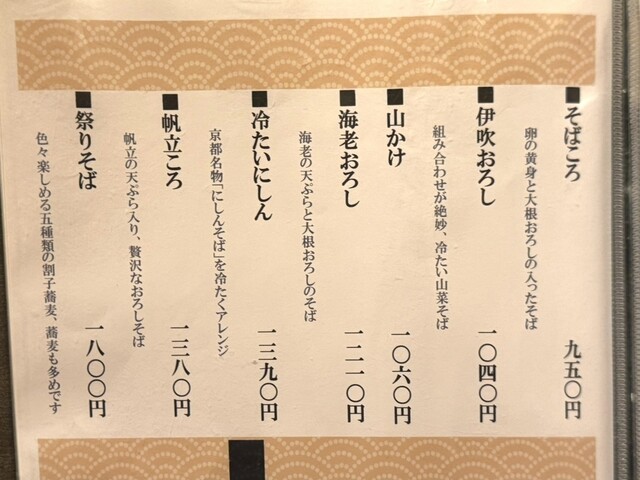 ■そばころ 九五〇円
卵の黄身と大根おろしの入ったそば
■伊吹おろし 一〇四〇円
組み合わせが絶妙、冷たい山菜そば
■山かけ 一〇六〇円
■海老おろし 一二一〇円
海老の天ぷらと大根おろしのそば
■冷たいにしん 一三九〇円
京都名物「にしんそば」を冷たくアレンジ
■帆立ころ 一三八〇円
帆立の天ぷら入り、贅沢なおろしそば
■祭りそば 一八〇〇円
色々楽しめる五種類の割子蕎麦、蕎麦も多めです